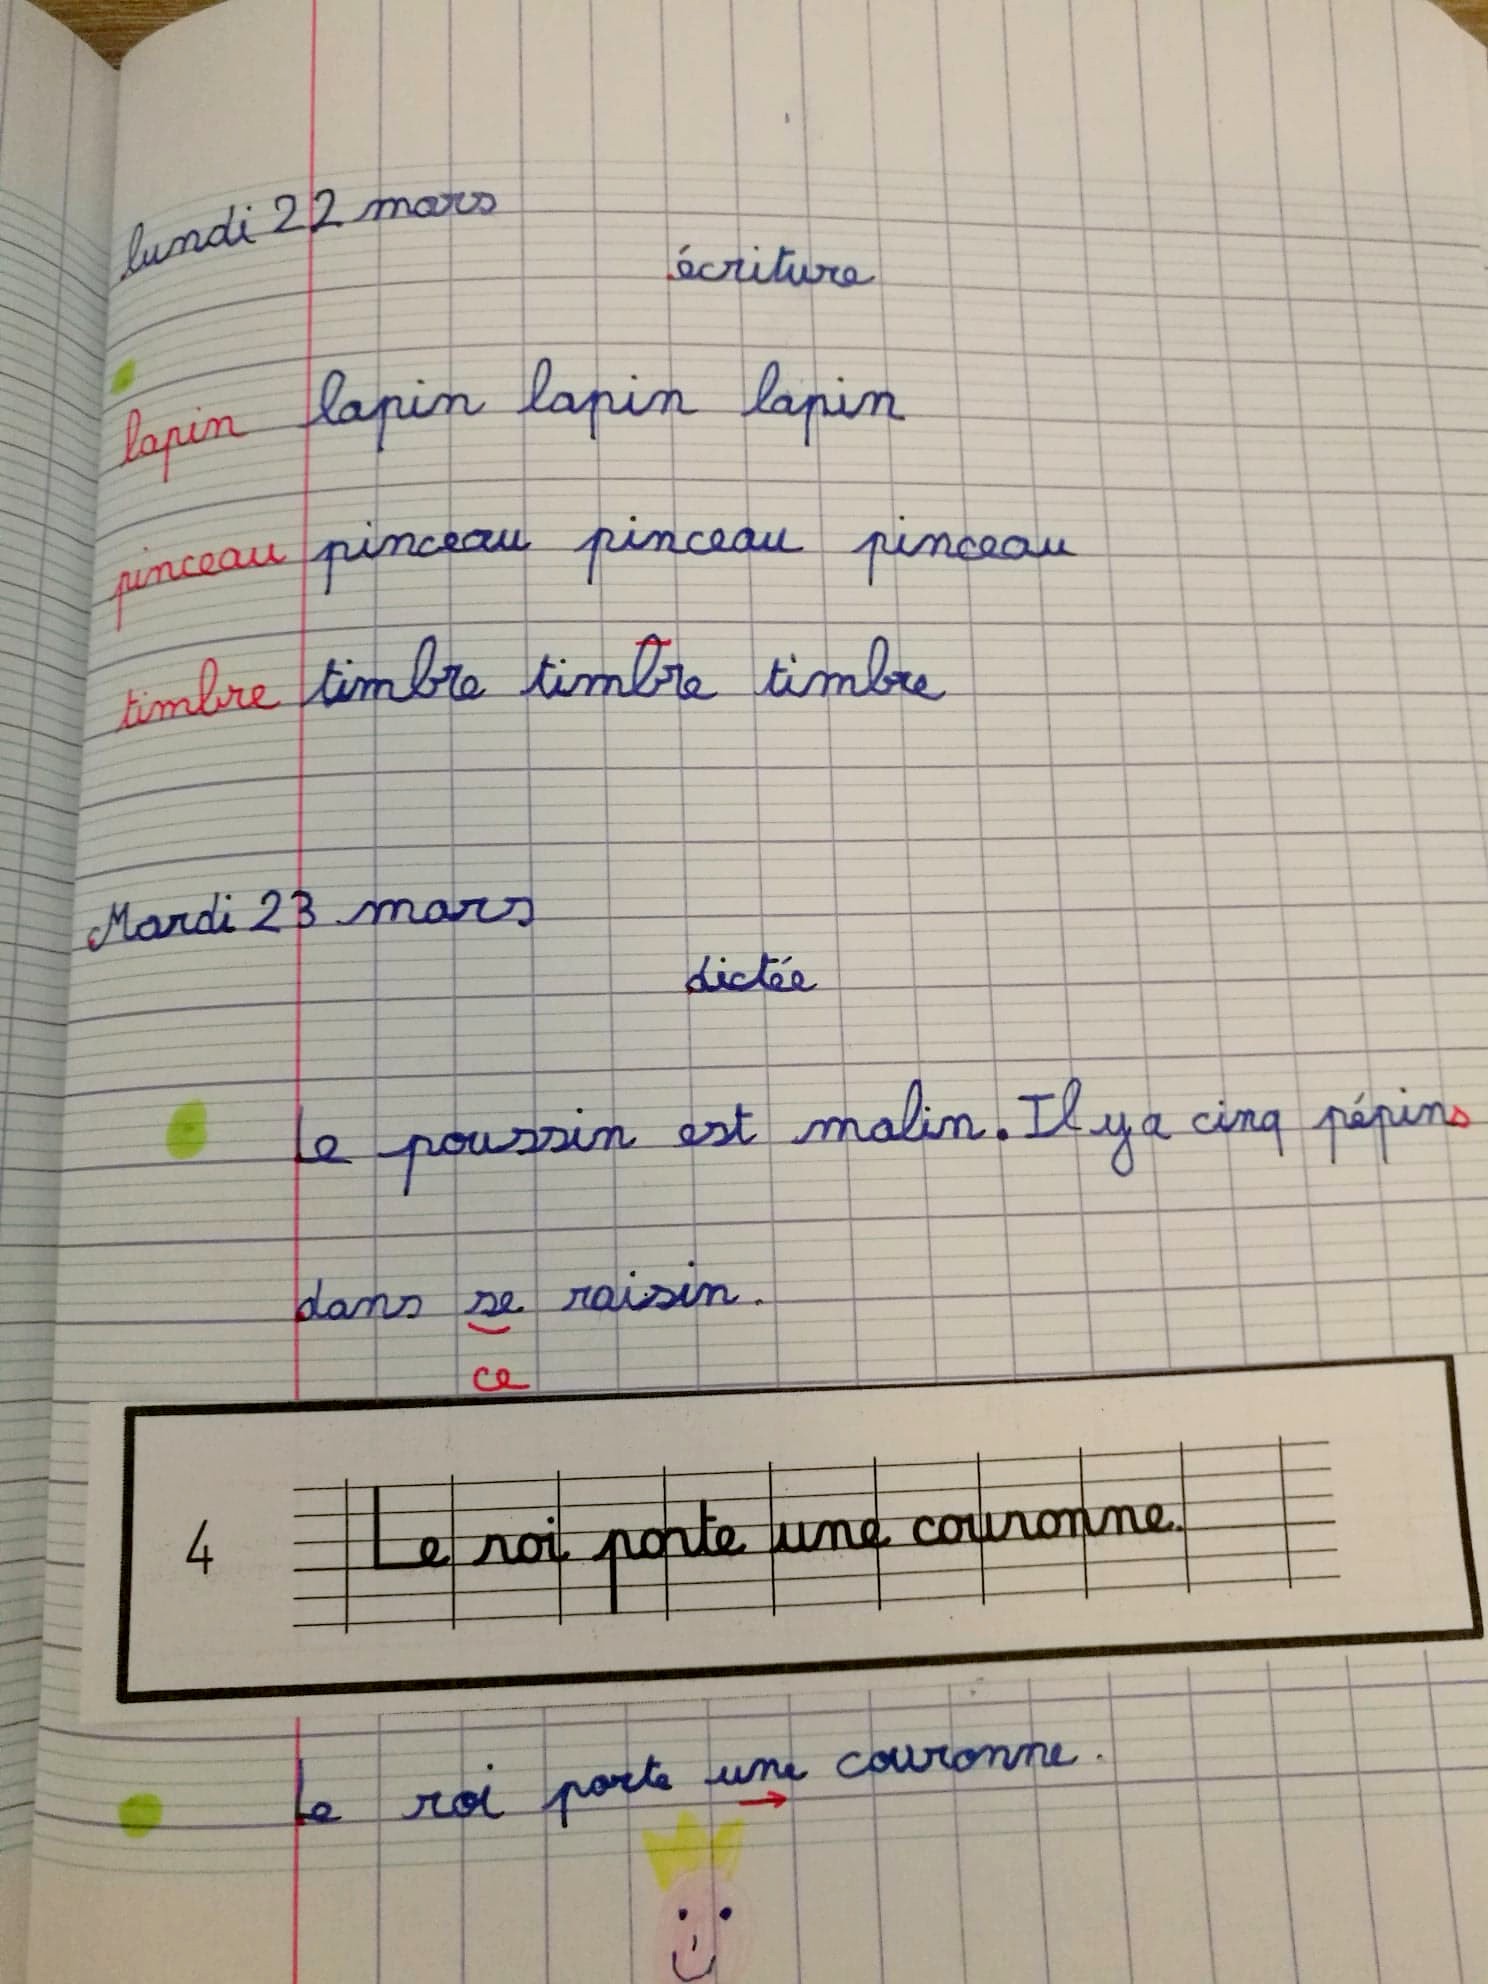 lundi 22 mars
écriture
lapin lapin lapin lapin
pinceau pinceau pinceau pinceau
timbre timbre timbre timbre
Mardi 23 mars
dictée
Le poussin est malin. Il y a cinq pépins
dans se raisin.
ce
4 Le roi porte une couronne.
Le roi porte une couronne.